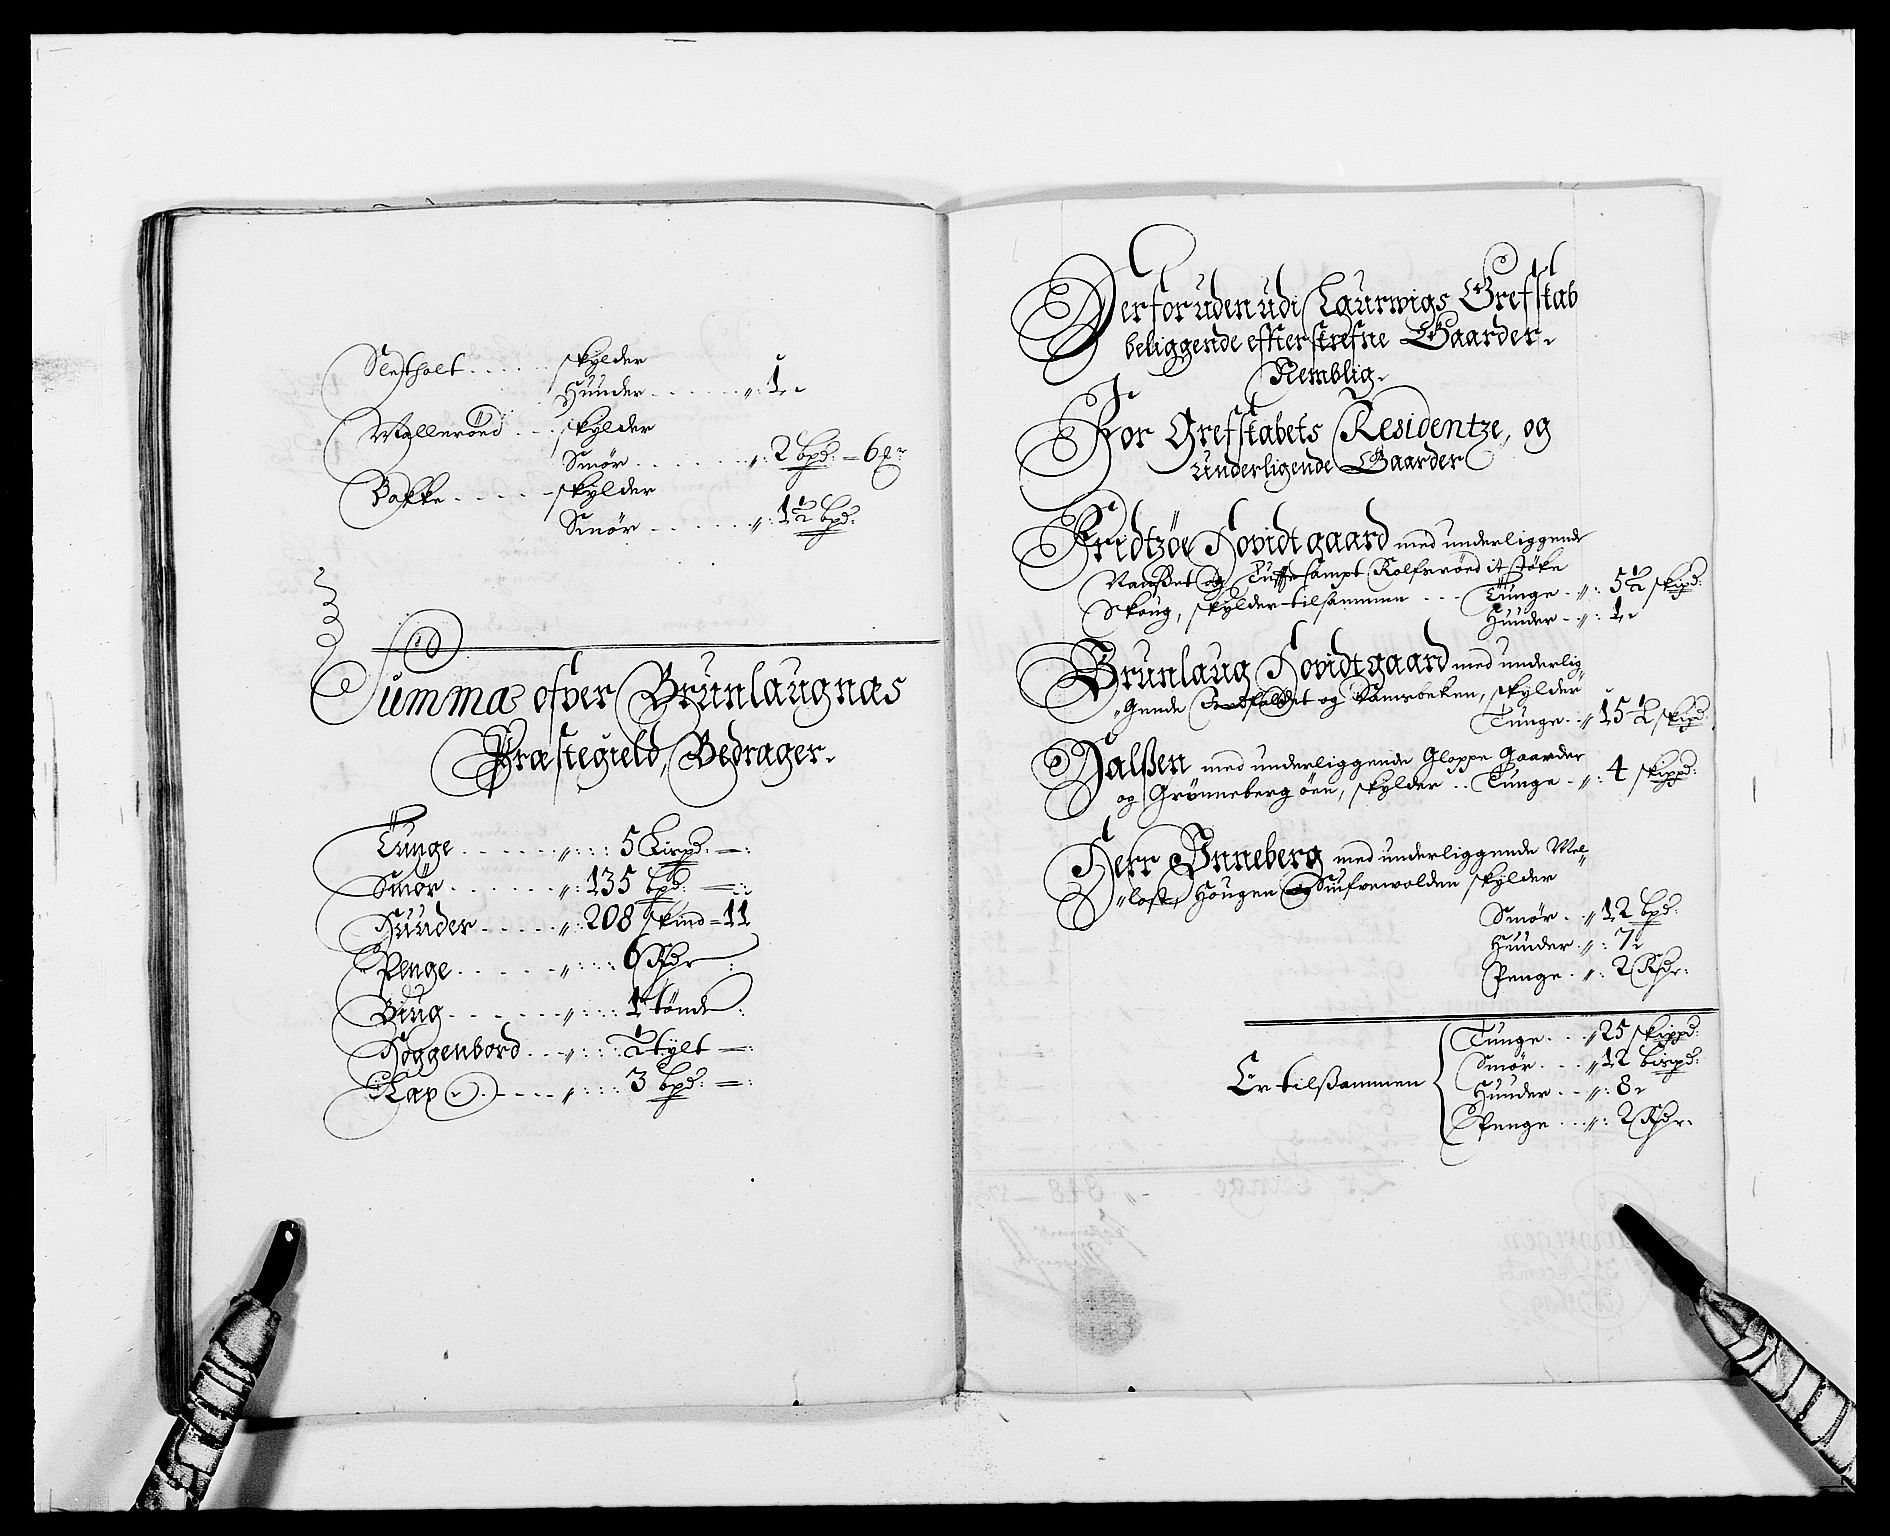 Sletholt . . . . . skylder
Huuder . . . . . . „: 1.
Walleröed . . . skylder
Smör . . . . . . . „: 2 bpd: = 6
Bakke . . . . . skylder
Smör . . . . . . „: 1½ bpd:
Summa ofver Brunlaugnas
Præstegield, Bedrager.
Tunge . . . . . . „: : : 5 Lispd: =:
Smör . . . . . . . „: 135 bpd: =:
Huuder . . . . . „: 208 skind = 11
Penge . . . . . . „: : : 6 Rdr :
Biug . . . . . . . „: : : 1 tönde :
Hoggenbord . . . „: : : ½ tylt =:
Kap . . . . . „: : : 3 bpd: =:
Derforuden udi Laurwigs Grefskab
beliggende efterskrefne Gaarder.
Nemblig.
For Grefskabets Residentze, og
Underligende Gaarder
Fridtzöe Hovidtgaard med underliggende
og sampt Rolfsröed it Stöke
Skoug, skylder tilsammen . . . Tunge . „: 5½ skipd:
Huuder . „: 1.
Brunlaug Hovidtgaard med underlig
„Gende og skylder
Tunge . „ 15½ skipd
Halßen med underliggende Gloppe Gaarder
og Grönneberg öen, skylder . . Tunge . „: 4 skippd:
Herr Önneberg med underliggende Mel„
„lost, Hougen og skylder
Smör . . „ 12 bpd:
Huuder . „: 7.
Penge . „: 2 Rdr.
Er tilßammen
Tunge . . . „ 25 skippd:
Smör . . . „ 12 bispd:
Huuder . . „: 8.
Penge . . . „: 2 Rdr.